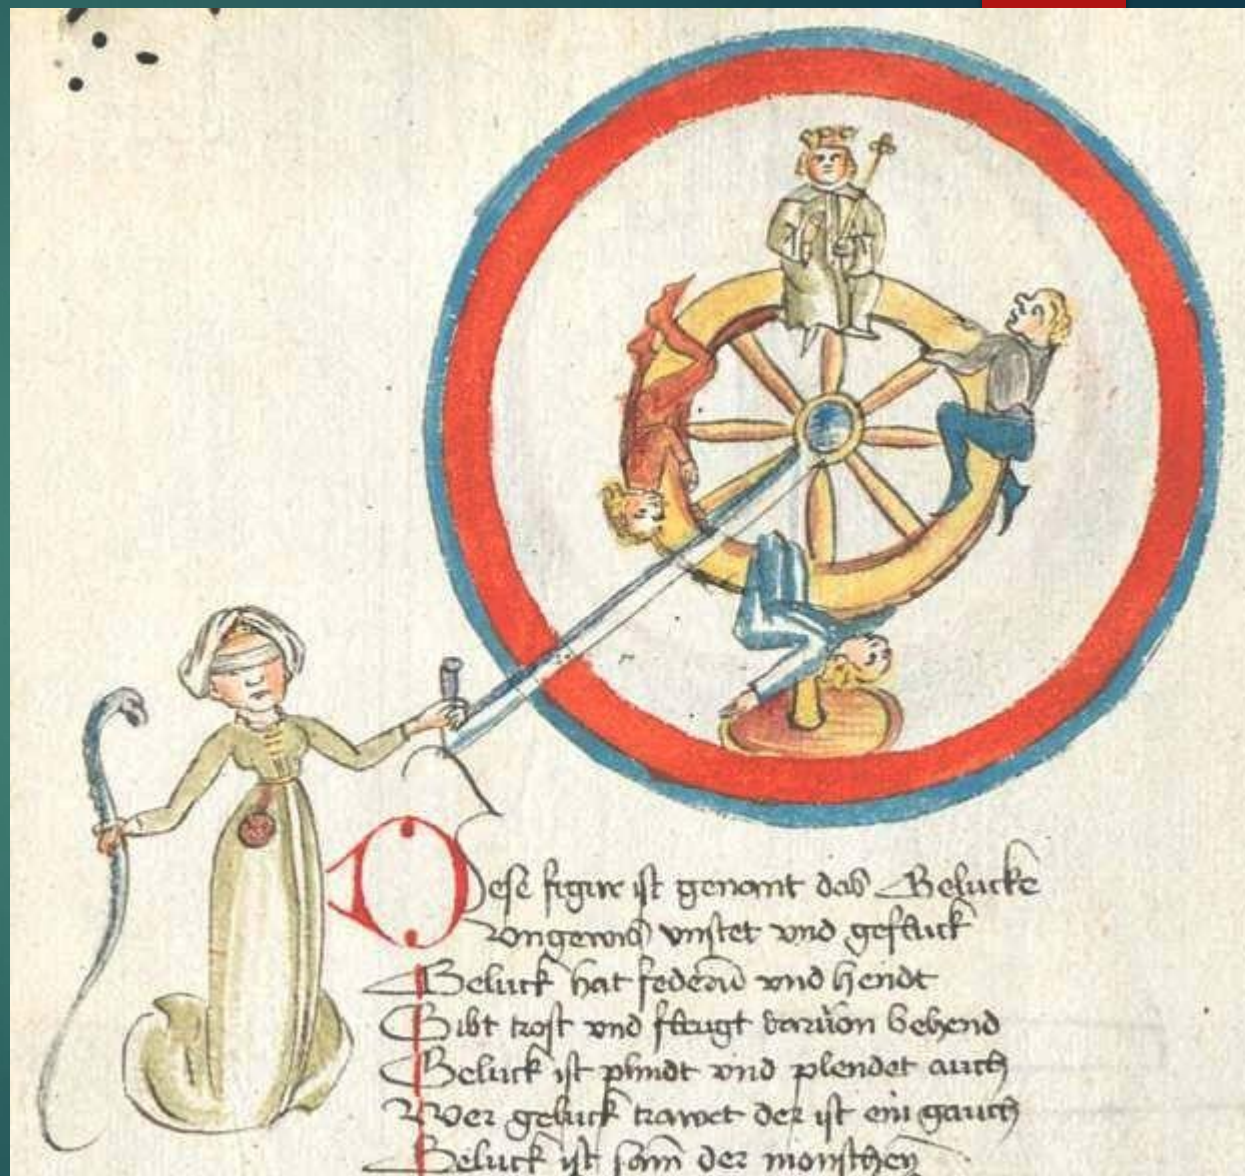 Dese figur ist genant das Gelucke
Ungewis vnstet vnd gefluck
Geluck hat federn vnd hendt
Gibt trost vnd fleugt daruon behend
Geluck ist plindt vnd plendet auch
Wer geluck trawet der ist ein gauch
Geluck ist sam der monschey